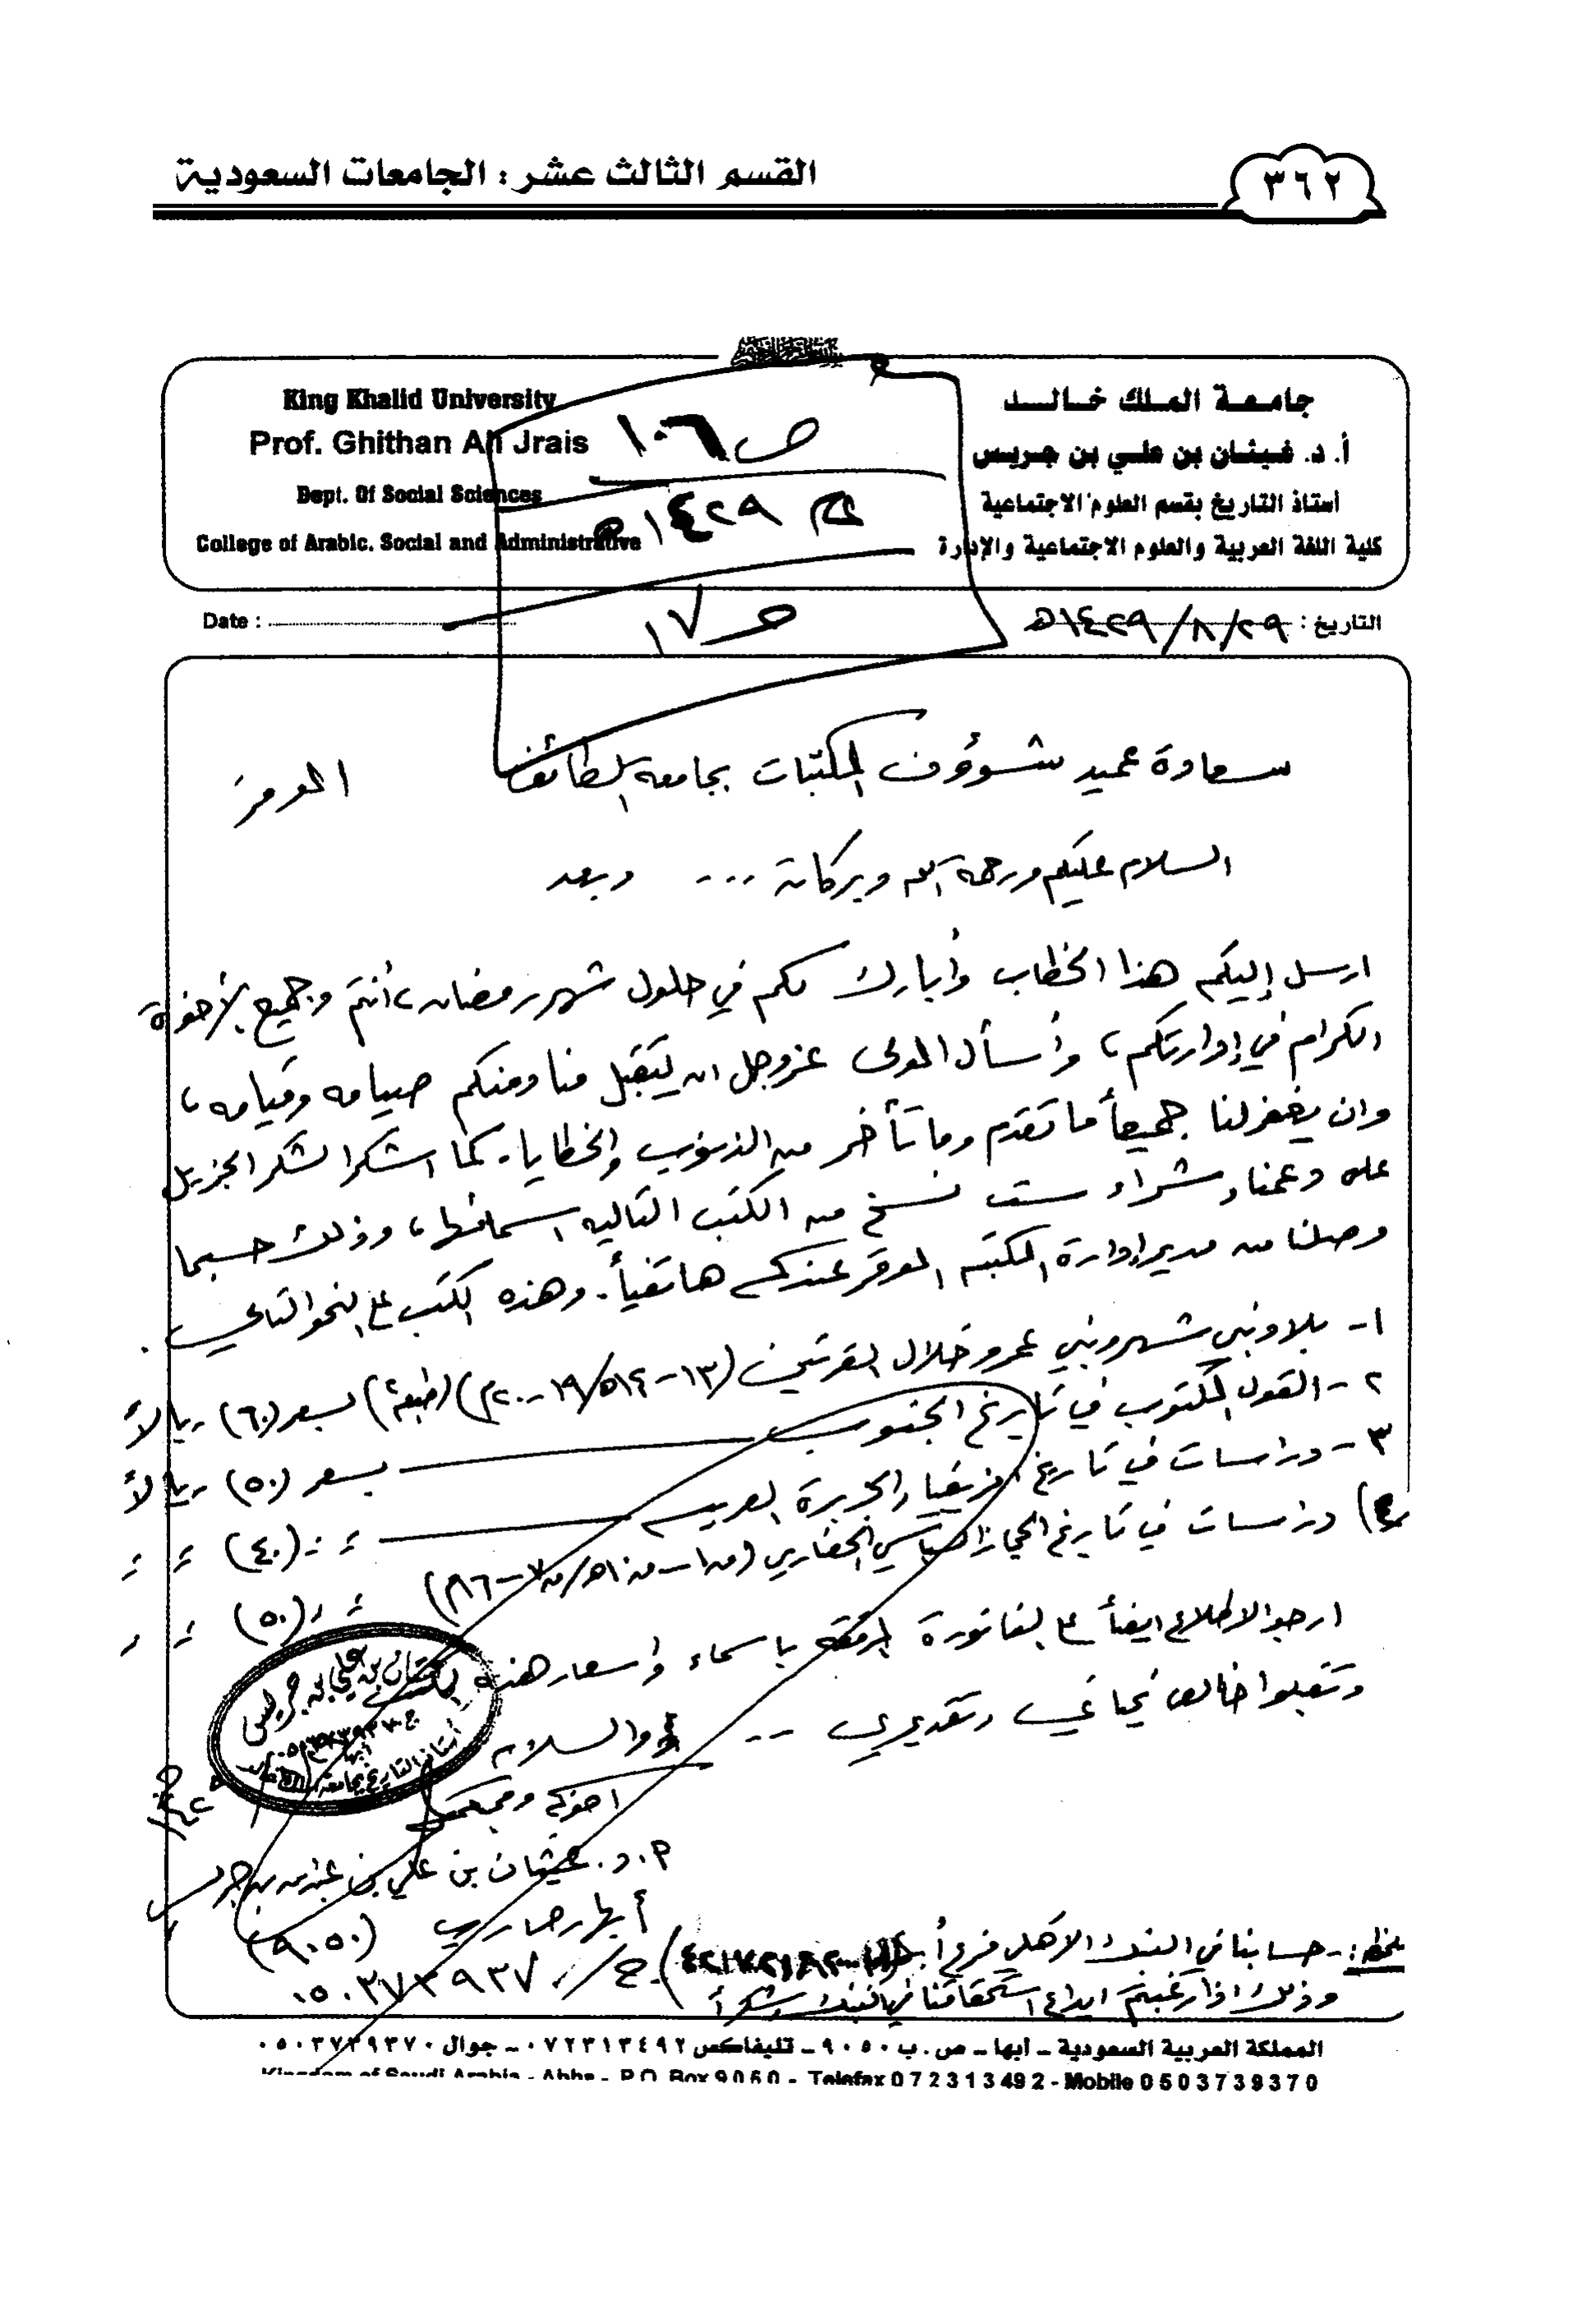 القسم الثالث عشر : الجامعات السعودية
٣٦٢
جامعة الملك خالد
أ. د. غيثان بن علي بن جريس
أستاذ التاريخ بقسم العلوم الاجتماعية
كلية اللغة العربية والعلوم الاجتماعية والإدارة
King Khalid University
Prof. Ghithan Ali Jrais
Dept. Of Social Sciences
College of Arabic. Social and Administrative
ص ١٠٦
عام ١٤٢٩هـ
ص ١٧
التاريخ : ٢٩/٨/١٤٢٩هـ
Date :
سعادة عميد شؤون المكتبات بجامعة الطائف الموقر
السلام عليكم ورحمة الله وبركاته ... وبعد
ارسل إليكم هذا الخطاب وأبارك لكم في حلول شهر رمضان، أنتم وجميع الأخوة
الكرام في إدارتكم، وأسأل المولى عز وجل ان يتقبل منا ومنكم صيامه وقيامه،
وان يغفر لنا جميعاً ما تقدم وما تأخر من الذنوب والخطايا. كما اشكر الشكر الجزيل
على دعمنا وشراء ست نسخ من الكتب التالية اسماؤها، وذلك حسبما
وصلنا من مدير إدارة المكتبة الموقر عندكم هاتفياً. وهذه الكتب على النحو التالي.
١- بلاد بني شهر وبني عمرو خلال القرنين (١٣-١٤هـ/١٩-٢٠م) (طبعة٢) بسعر (٦٠) ريالاً
٢- القول المكتوب في تاريخ الجنوب بسعر (٥٠) ريالاً
٣- دراسات في تاريخ افريقيا والجزيرة العربية = = (٤٠) = =
٤) دراسات في تاريخ الحجاز السياسي الحضاري (ق١-ق١٠هـ/ق٧-ق١٦م) = = (٥٠) = =
ارجو الاطلاع ايضاً على الفاتورة المرفقة باسماء وأسعار هذه الكتب
وتقبلوا خالص تحياتي وتقديري -- والسلام
اخوكم ومحبكم
أ.د. غيثان بن علي بن عبدالله بن جريس
أبها ص.ب (٩٠٥٠)
ج/ ٠٥٠٣٧٣٩٣٧٠
ملحظ:- حسابنا في البنك الاهلي فرع أبها
وذلك اذا رغبتم ايداع استحقاقنا في البنك وشكراً
المملكة العربية السعودية - أبها - ص.ب ٩٠٥٠ - تليفاكس ٠٧٢٣١٣٤٩٢ - جوال ٠٥٠٣٧٣٩٣٧٠
Kingdom of Saudi Arabia - Abha - P.O. Box 9050 - Telefax 072313492 - Mobile 0503739370